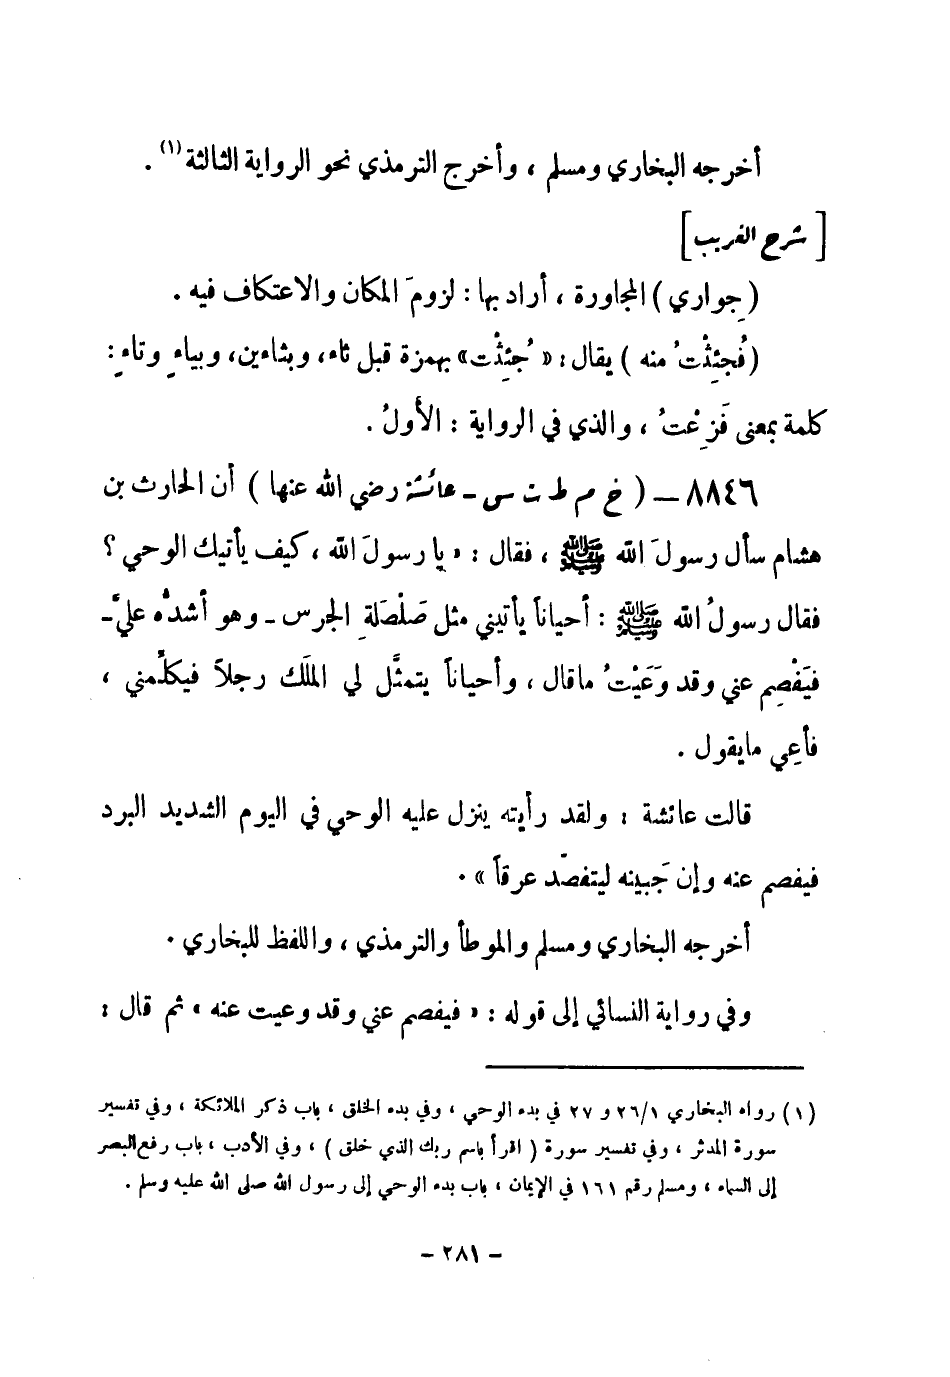 أخرجه البخاري ومسلم ، وأخرج الترمذي نحو الرواية الثالثة (١) .
[ شرح الغريب ]
( جِواري ) المجاورة ، أراد بها : لزومَ المكان والاعتكاف فيه .
( فجُئِثْتُ منه ) يقال : « جُئِثْت » بهمزة قبل ثاء ، وبثاءين ، وبياءٍ وتاءٍ :
كلمة بمعنى فَزِعْتُ ، والذي في الرواية : الأولُ .
٨٨٤٦ – ( خ م ط ت س - عائشة رضي الله عنها ) أن الحارث بن
هشام سأل رسولَ الله ﷺ ، فقال : « يا رسولَ الله ، كيف يأتيك الوحي ؟
فقال رسولُ الله ﷺ : أحياناً يأتيني مثل صَلْصَلَةِ الجرس - وهو أشدُّه عليَّ -
فيَفْصِم عني وقد وَعَيْتُ ما قال ، وأحياناً يتمثَّل لي الملَك رجلاً فيكلِّمني ،
فأعِي ما يقول .
قالت عائشة : ولقد رأيته ينزل عليه الوحي في اليوم الشديد البرد
فيفصم عنه وإن جَبينه ليتفصّد عرقاً » .
أخرجه البخاري ومسلم والموطأ والترمذي ، واللفظ للبخاري .
وفي رواية النسائي إلى قوله : « فيفصم عني وقد وعيت عنه » ثم قال :
(١) رواه البخاري ٢٦/١ و ٢٧ في بدء الوحي ، وفي بدء الخلق ، باب ذكر الملائكة ، وفي تفسير
سورة المدثر ، وفي تفسير سورة ( اقرأ باسم ربك الذي خلق ) ، وفي الأدب ، باب رفع البصر
إلى السماء ، ومسلم رقم ١٦١ في الإيمان ، باب بدء الوحي إلى رسول الله صلى الله عليه وسلم .
- ٢٨١ -